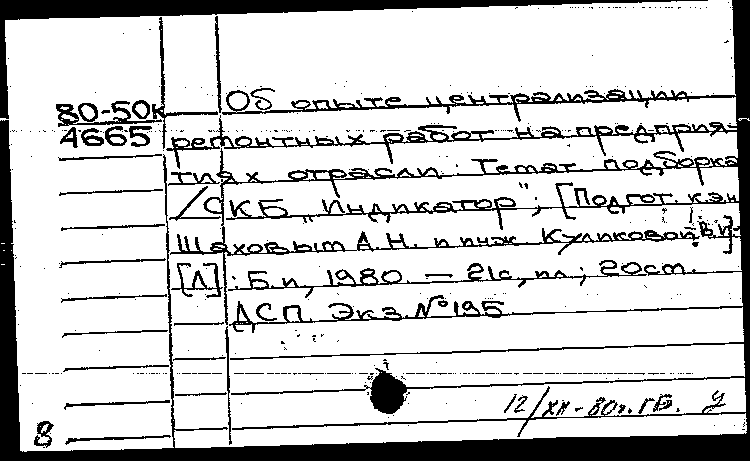 80-50к Об опыте централизации
4665 ремонтных работ на предприя-
тиях отрасли: Темат. подборка
/СКБ „Индикатор"; [Подгот. к.э.н
Шаховым А.Н. и инж Куликовой В.И.]-
[Л]: Б.и, 1980. — 21с, ил; 20см.
ДСП. Экз. №195
12/XII-80г. ГБ.
8